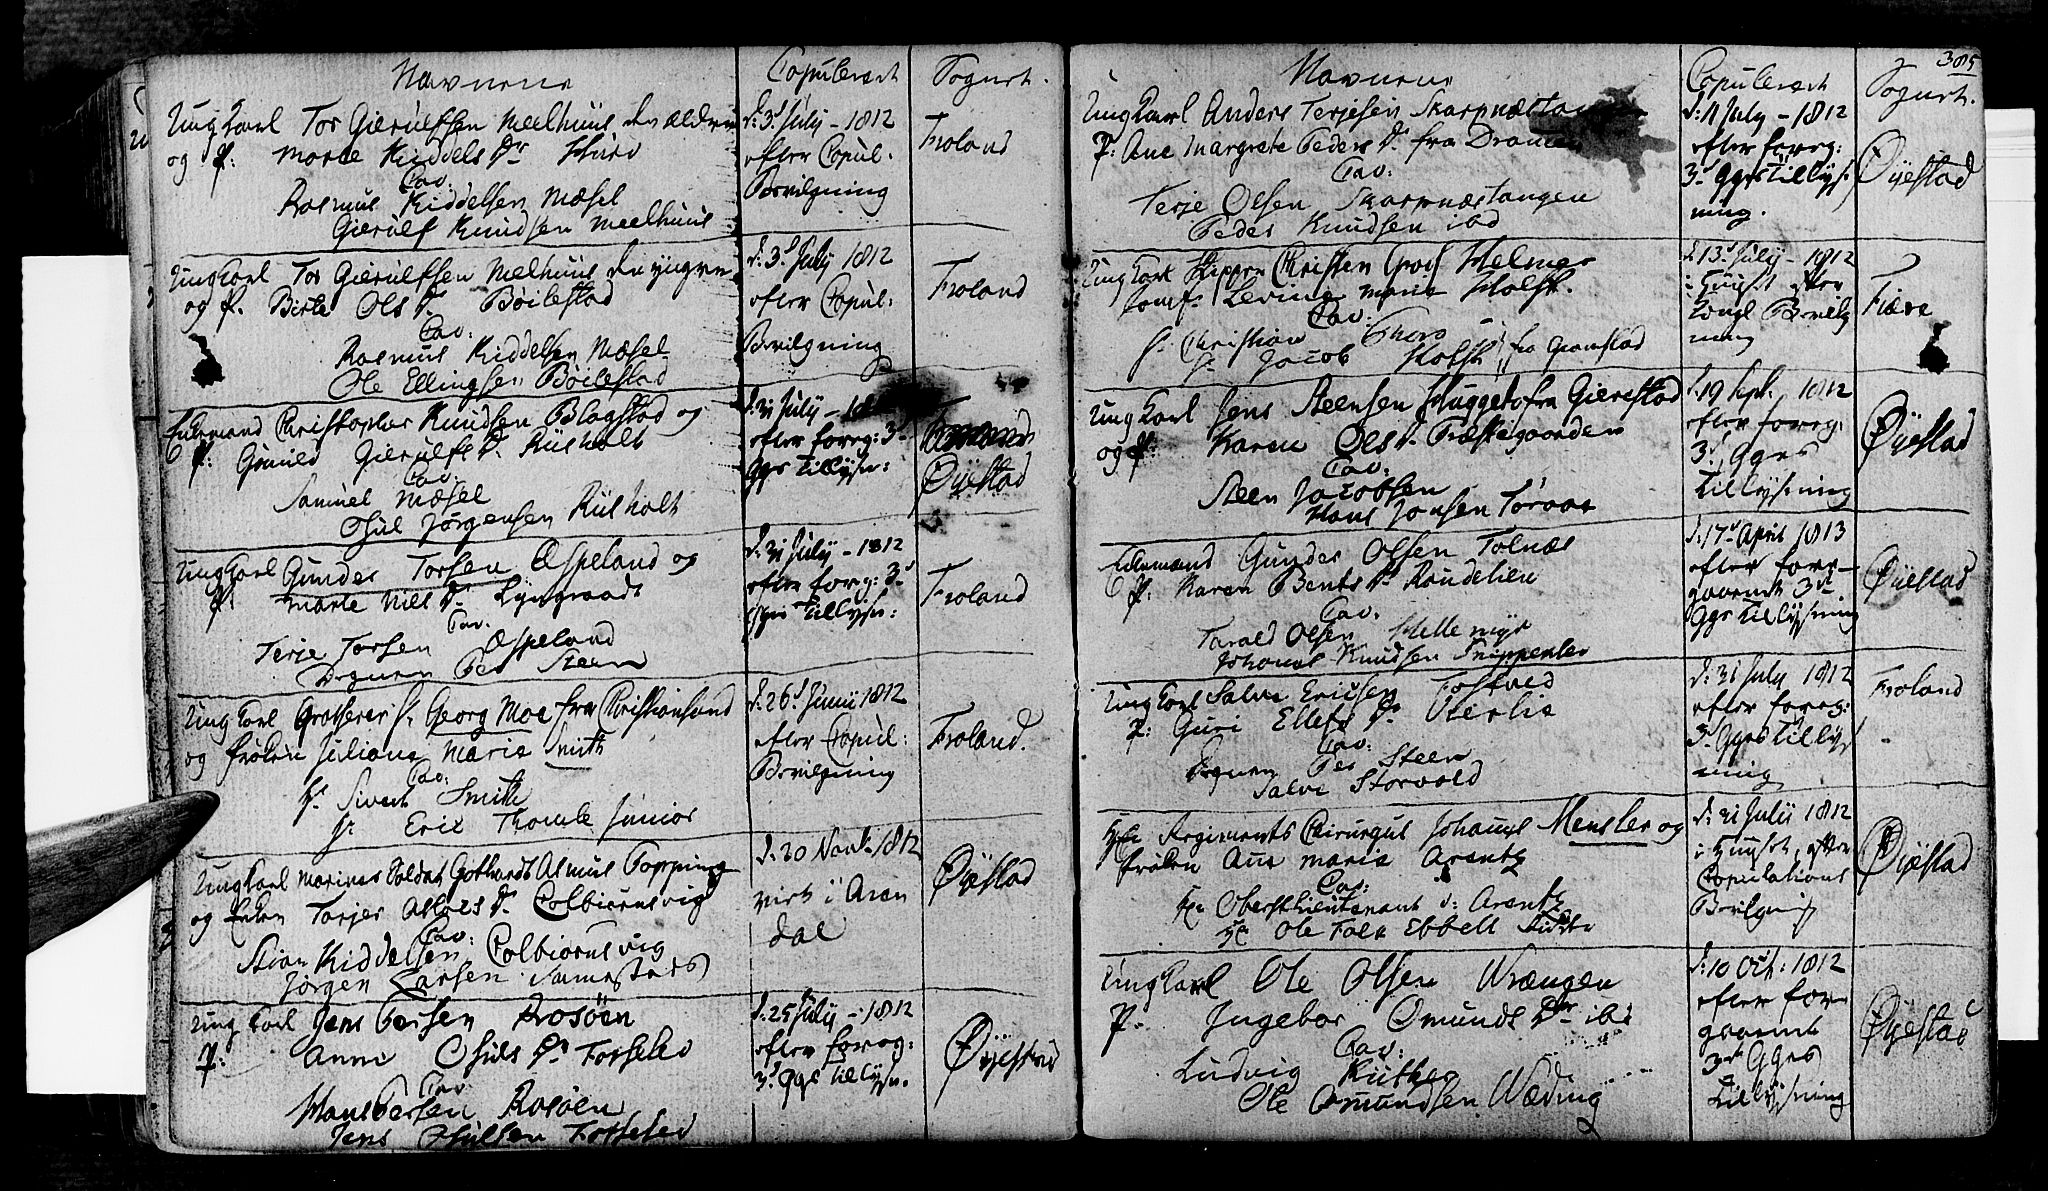 Navnene
Copuleret
Sognet.
Ung Karl Tor Gierulfsen Meelhuus den ældre
og P: Marte Kiddels Dr Hurv
Cav:
Rasmus Kiddelsen Mæsel
Gierulf Knudsen Meelhuus
d: 3d July - 1812
efter Copul.
Bevilgning
Froland
Ung Karl Tor Gierulfsen Melhuus den yngre
og P. Birte Ols Dr Bøilestad
Cav:
Rasmus Kiddelsen Mæsel
Ole Ellingsen Bøilestad
d: 3d July 1812
efter Copul:
Bevilgning
Froland
Enkemand Christopher Knudsen Blagstad og
P: Gunild Gierulfs Dr Rusholt
Cav:
Samuel Mæsel
Osul Jørgensen Rusholt
d: 31 July - 18
efter foreg: 3d
Ggs Tillysn:
Øyestad
Ung Karl Gunder Torsen Espeland og
P: Marte Nils Dr Lyngraadt
Cav.
Terje Torsen Espeland
Degnen Per Steen
d: 31 July - 1812
efter foreg: 3d
Ggs Tillysn:
Froland
Ung Karl Hr Georg Moe fra Christiansand
og frøken Juliana Maria Smith
Cav:
Hr Sivert Smith
Hr Eric Thomle Junior
d: 26d Junii 1812
efter Copul:
Bevilgning
Froland.
Ung Karl Marines Soldat Gothardt Asmus Topping
og Enken Torjer Aslacs Dr Colbiørnsvig
Cav:
Stian Kiddelsen Colbiørnsvig
Jørgen Larsen Sannestads
d: 20 Novb. 1812
viet i Aren
dal
Øyestad
Ung Karl Jens Persen Rosøen
P: Anne Osuls Dr Torseløv
Cav:
Hans Persen Rosøen
Jens Osulsen Torseløv
d: 25 July - 1812
efter foreg:
3d Ggs Tillysn.
Øyestad
385
Navnene
Copuleret
Sognet.
Ung Karl Anders Terjesen Skarpnæstan
P: Ane Margrete Peders Dr fra Drange
Cav:
Terje Olsen Skarpnæstangen
Peder Knudsen ibd
d: 11 July - 1812
efter foreg:
3d Ggs Tillys-
ning.
Øyestad
Ung Karl Skipper Christen Helmer
Jomf. Levine Marie Holst.
Cav:
Hr Christian Thers
Hr Jacob Holst fra Grimstad
d: 13d July - 1812
i Huuset efter
Kongl Bevilg
ning
Fiære
Ung Karl Jens Steensen Hugget fra Gierestad
og P: Karen Ols Dr Præstegaarden
Cav:
Steen Jacobsen
Hans Jonsen Toraas
d: 19 Sept. 1812
efter foreg:
3d Gges
Tillysning
Øyestad
Enkemand Gunder Olsen Tolnæs
P: Karen Bents Dr Rondelien
Cav:
Tarald Olsen Hellemyr
Johanes Knudsen
d: 17d April 1813
efter fore-
gaaende 3d
Ggs Tillysning
Øyestad
Ung Karl Salve Ericsen Fosvold
P: Guri Ellefs Dr Osterlie
Cav:
Degnen Per Steen
Salve Storvold
d: 31 July 1812
efter foreg:
3d Ggs Tillys
ning
Froland
Hr Regiments Chirurgus Johannes Mensler og
frøken Ane Marie Arentz
Cav:
Hr Oberstlieutenant v: Arentz
Hr Ole Falk Ebbell
d: 31 July 1812
i Huuset, efter
Copulations
Bevilgning
Øyestad
Ung Karl Ole Olsen Wrængen
P. Ingebor Omunds Dr ibd
Cav:
Ludvig Kutker
Ole Omundsen Wæding
d: 10 Oct: 1812
efter fore-
gaaende
3de Gges
Tillysning
Øyestad